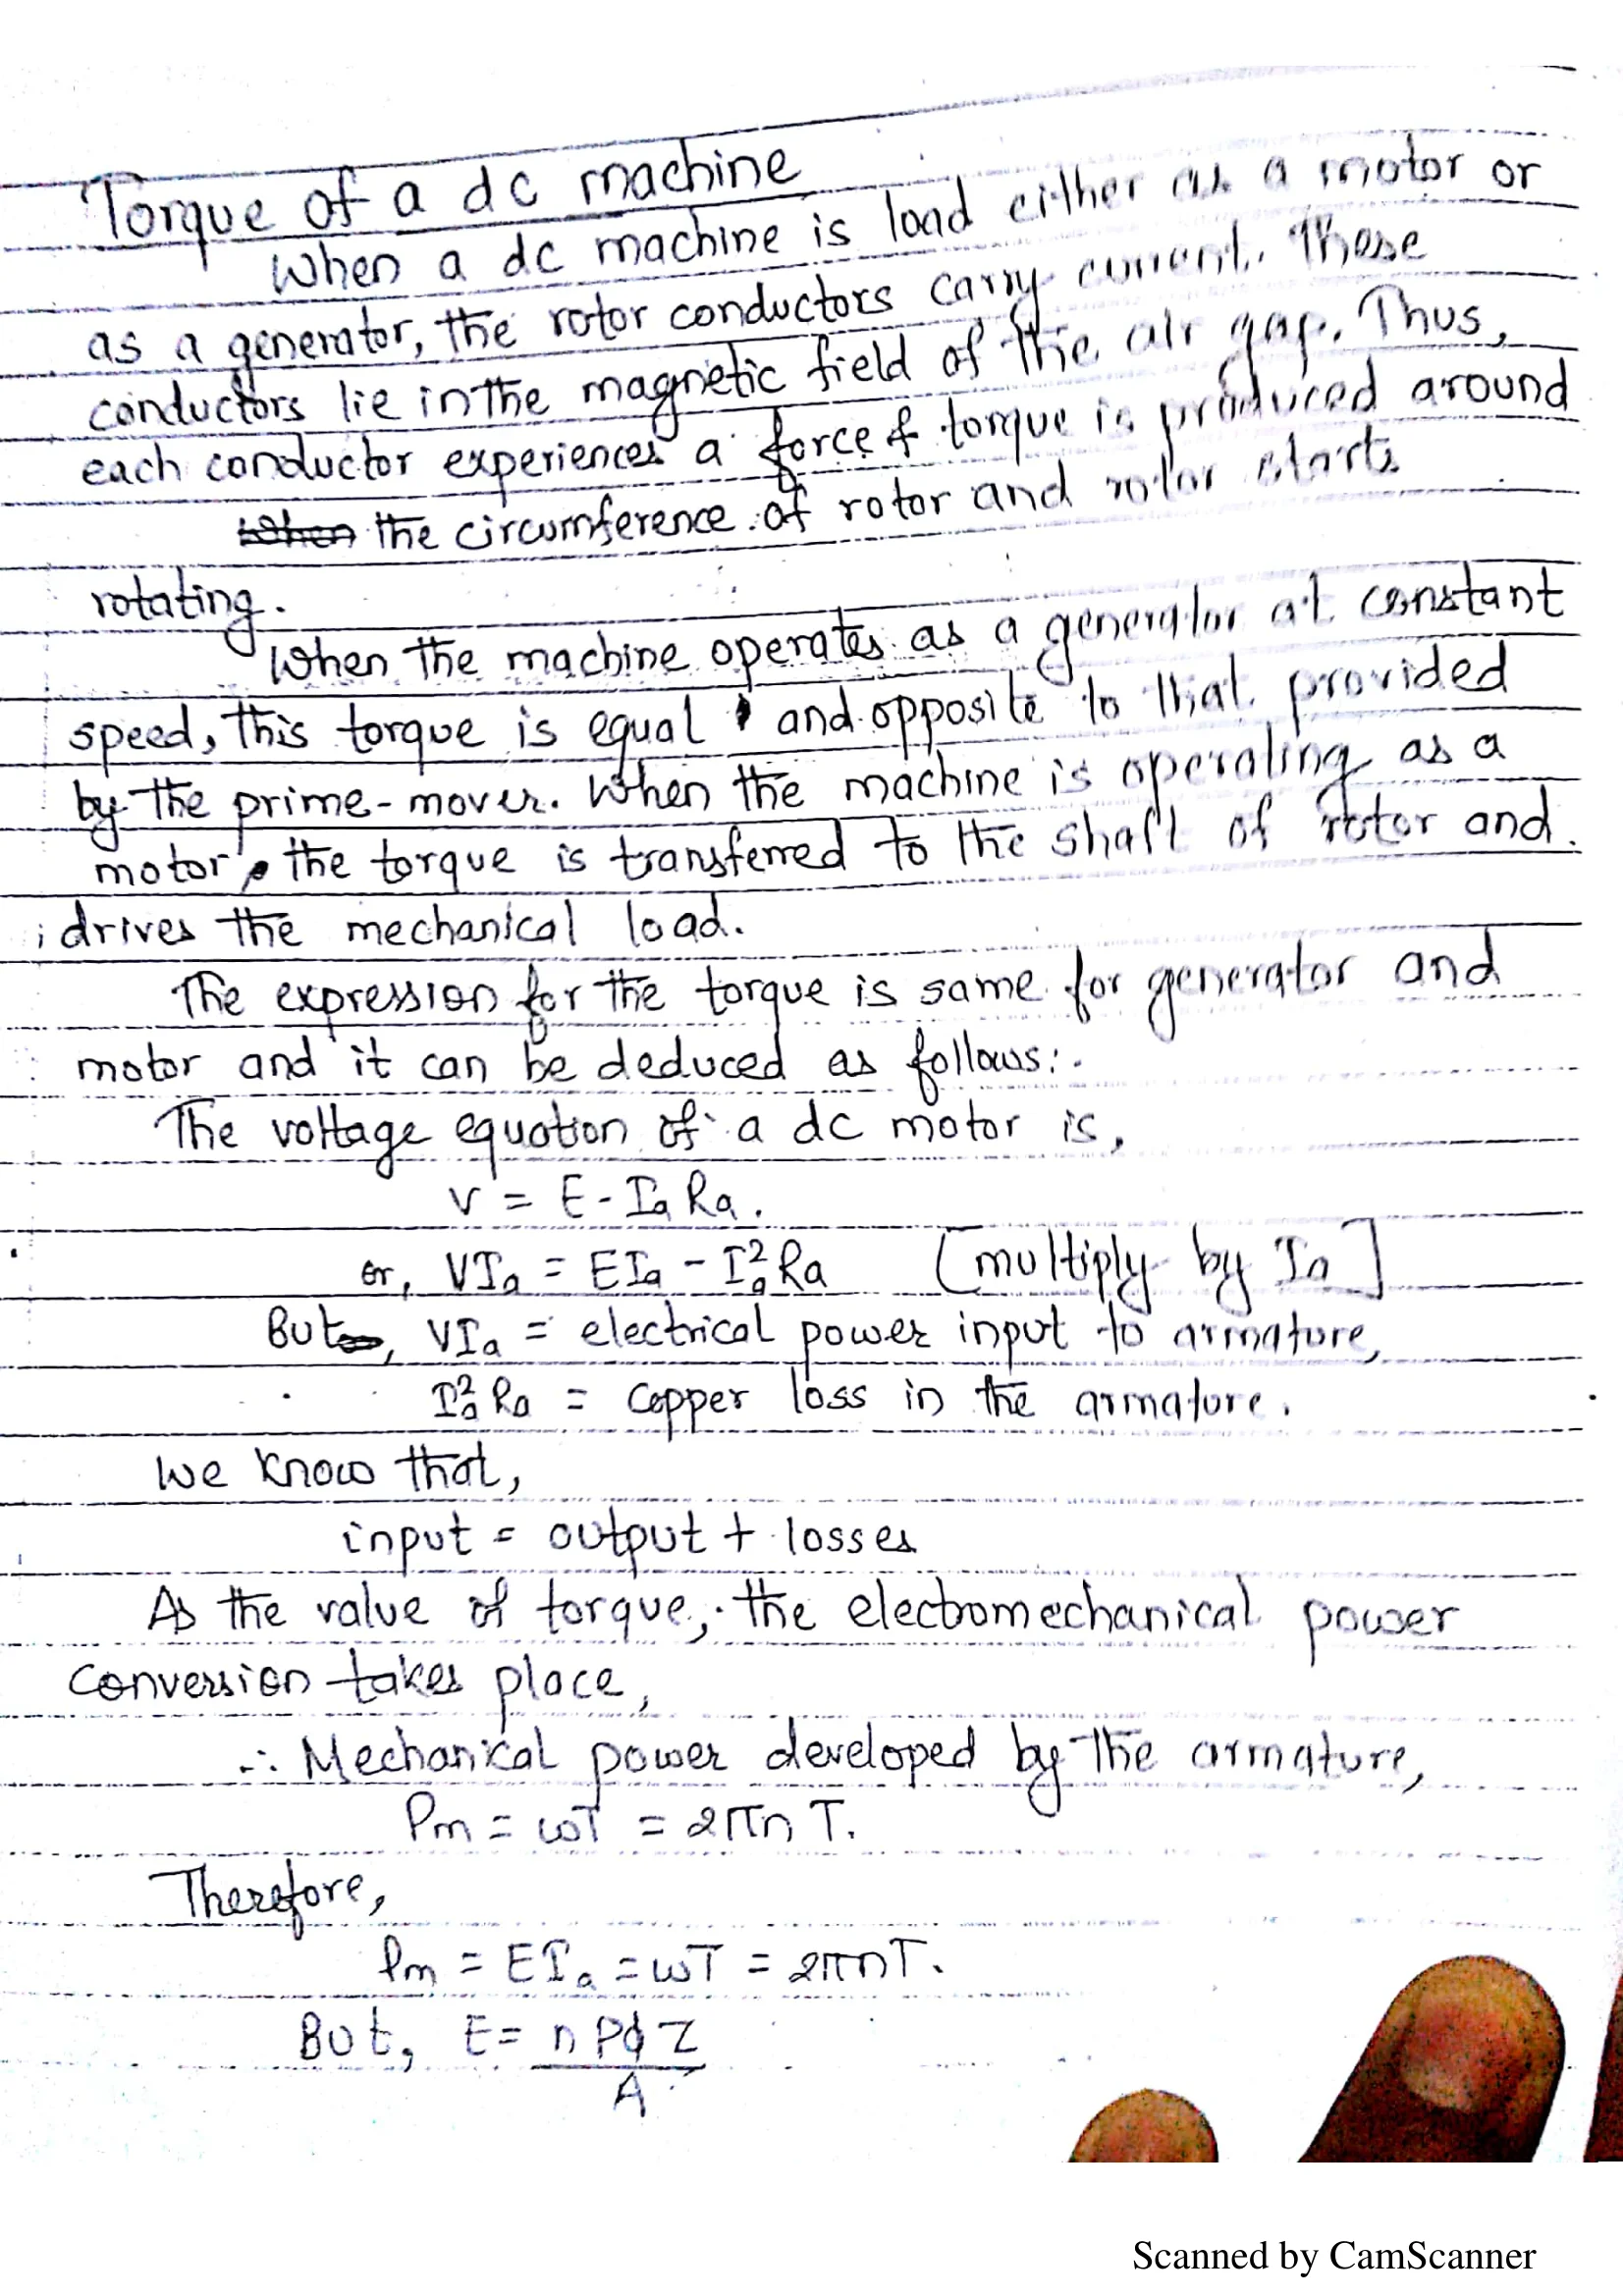 Torque of a dc machine
When a dc machine is load either as a motor or
as a generator, the rotor conductors carry current. These
conductors lie in the magnetic field of the air gap. Thus,
each conductor experiences a force & torque is produced around
When the circumference of rotor and rotor starts
rotating.
When the machine operates as a generator at constant
speed, this torque is equal and opposite to that provided
by the prime-mover. When the machine is operating as a
motor, the torque is transferred to the shaft of rotor and
drives the mechanical load.
The expression for the torque is same for generator and
motor and it can be deduced as follows:-
The voltage equation of a dc motor is,
V = E - IaRa.
or, VIa = EIa - Ia²Ra [multiply by Ia]
But, VIa = electrical power input to armature,
Ia²Ra = copper loss in the armature.
We know that,
input = output + losses
As the value of torque, the electromechanical power
conversion takes place,
∴ Mechanical power developed by the armature,
Pm = ωT = 2πnT.
Therefore,
Pm = EIa = ωT = 2πnT.
But, E = nPϕZ
A
Scanned by CamScanner